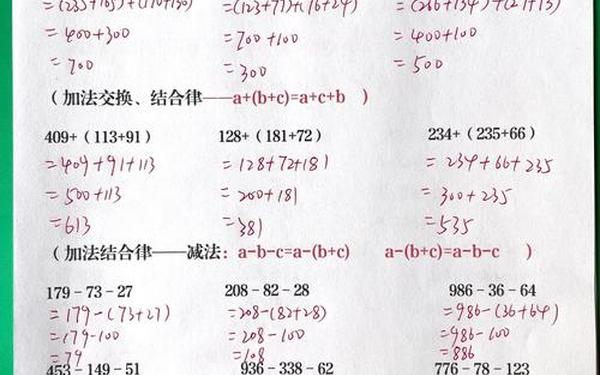 =(235+165)+(170+130) =(123+77)+(76+24) =(266+134)+(87+13)
=400+300 =200+100 =400+100
=700 =300 =500
(加法交换、结合律——a+(b+c)=a+c+b )
409+(113+91) 128+(181+72) 234+(235+66)
=409+91+113 =128+72+181 =234+66+235
=500+113 =200+181 =300+235
=613 =381 =535
(加法结合律——减法:a-b-c=a-(b+c) a-(b+c)=a-b-c )
179-73-27 208-82-28 986-36-64
=179-(73+27) =208-(82+28) =986-(36+64)
=179-100 =208-100 =986-100
=79 =108 =886
453-149-51 936-338-62 776-78-123